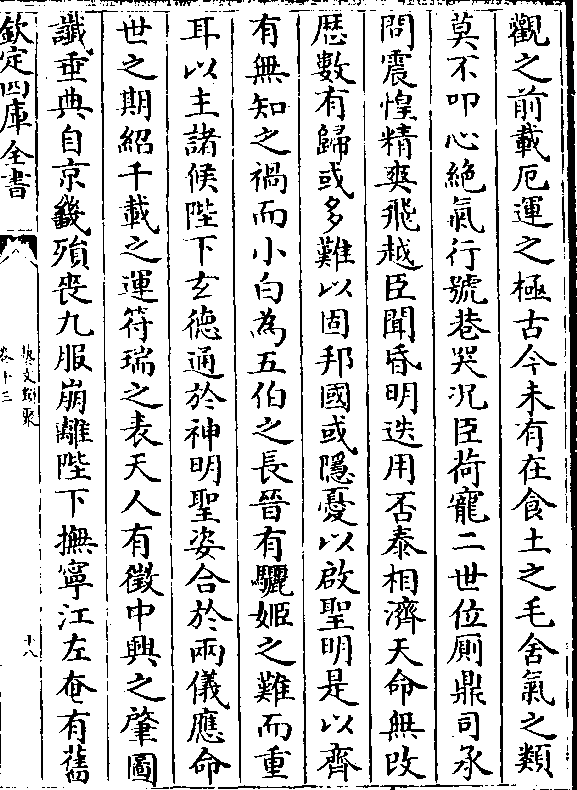 觀之前載厄運之極古今未有在食土之毛舍氣之類
莫不叩心絶氣行號巷哭况臣荷寵二世位厠鼎司承
問震惶精爽飛越臣聞昏明迭用否泰相濟天命無改
厯數有歸或多難以固邦國或隱憂以啟聖明是以齊
有無知之禍而小白為五伯之長晉有驪姬之難而重
耳以主諸候陛下玄德通於神明聖姿合於兩儀應命
世之期紹千載之運符瑞之表天人有徵中興之肇圖
讖垂典自京畿殞喪九服崩離陛下撫寧江左奄有舊
欽定四庫全書
藝文類聚
卷十三
十八